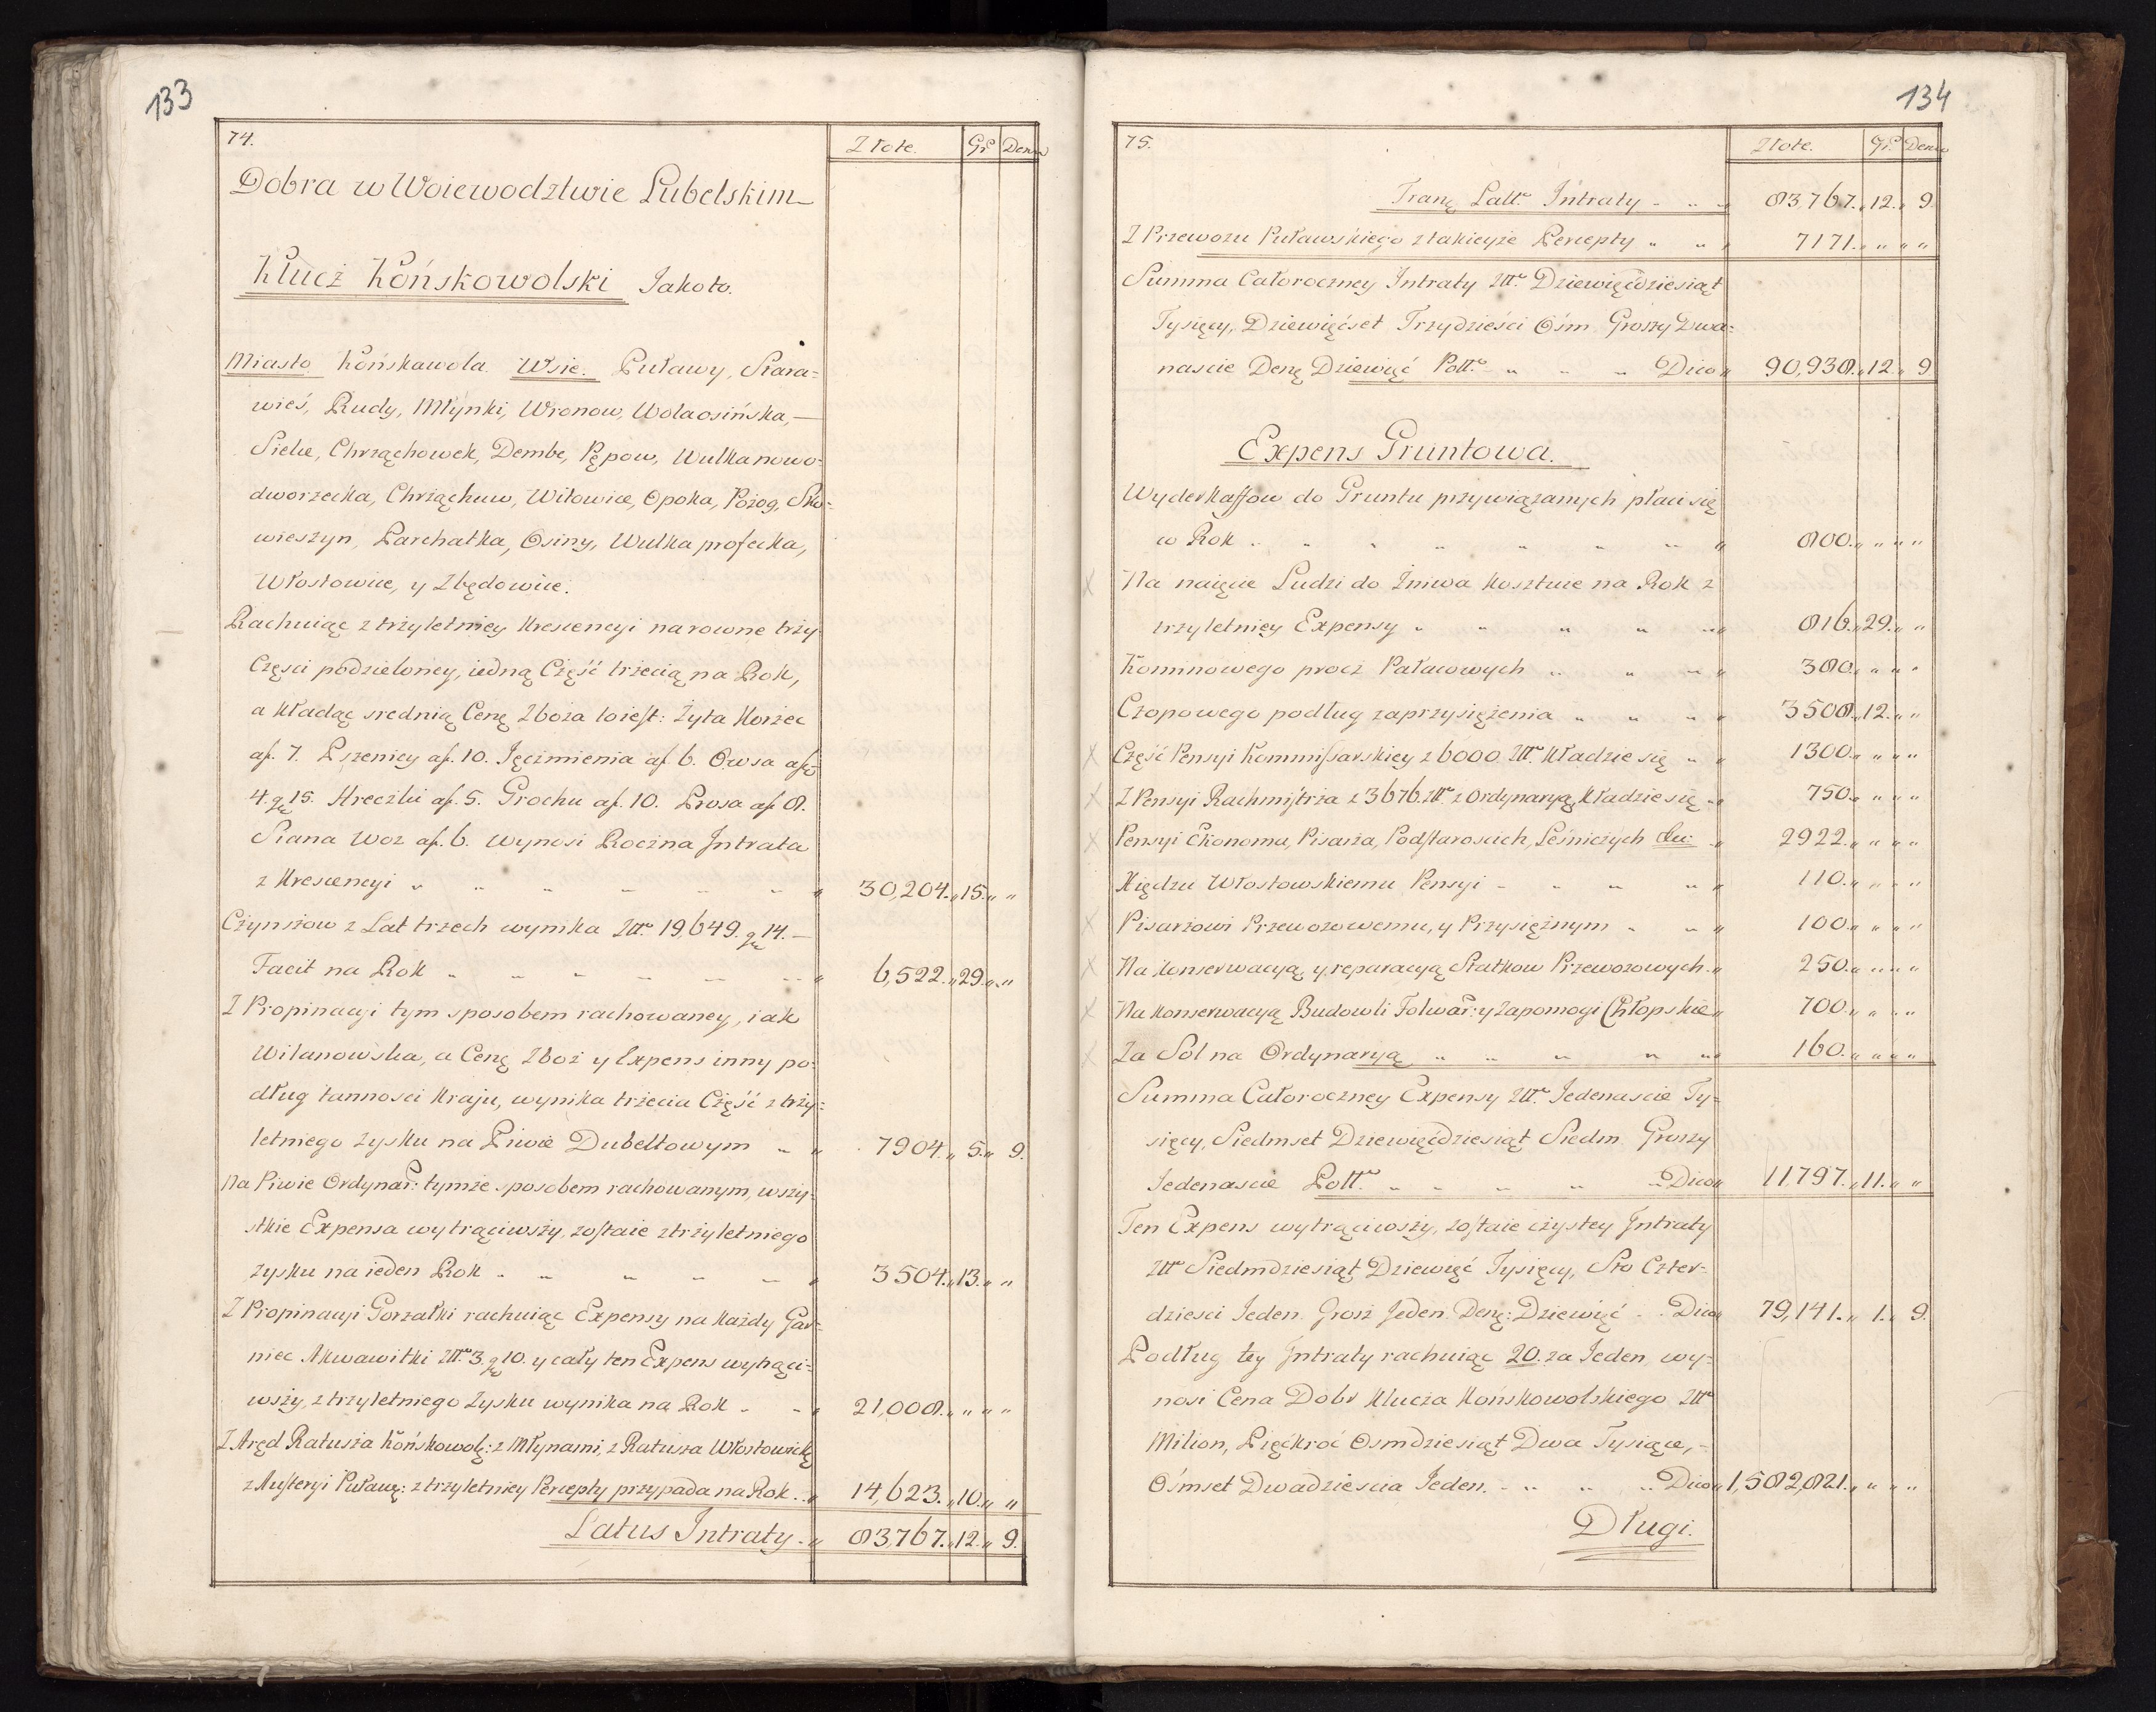 133
74.
Złote. Gr. Denar
Dobra w Woiewodztwie Lubelskim
Klucz Końskowolski Jakoto.
Miasto Końskawola. Wsie. Puławy, Stara=
wieś, Rudy, Młynki, Wronow, Wolaosińska,—
Sielce, Chrząchowek, Dembe, Pępow, Wulkanowo=
dworzecka, Chrząchuw, Witowice, Opoka, Pożog, Sko=
wieszyn, Parchatka, Osiny, Wulka profecka,
Włostowice, y Zbędowice.
Rachuiąc z trzyletniey Krescencyi na rowne trzy
Częsci podzieloney, iedną Część trzecią na Rok,
a kładąc srednią Cenę Zboża toiest: Żyta Korzec
af. 7. Pszenicy af. 10. Jęczmienia af. 6. Owsa af.
4. gr 15. Hreczki af. 5. Grochu af. 10. Prosa af. 8.
Siana Woz af. 6. wynosi Roczna Intrata
z Krescencyi „ 30,204. „ 15. „ „
Czynszow z Lat trzech wynika Złł. 19,649. gr 14.—
Facit na Rok „ 6,522. „ 29. „ „
Z Propinacyi tym sposobem rachowaney, iak
Wilanowska, a Cenę Zboż y Expens inny po=
dług tannosci Kraju, wynika trzecia Część z trzy=
letniego zysku na Piwie Dubeltowym „ 7904. „ 5. „ 9.
Na Piwie Ordynar: tymże sposobem rachowanym, wszy=
stkie Expensa wytrąciwszy, zostaie z trzyletniego
zysku na ieden Rok „ 3504. „ 13. „ „
Z Propinacyi Gorzałki rachuiąc Expensy na każdy Gar=
niec Akwawitki Złł. 3. gr 10. y cały ten Expens wytrąci=
wszy, z trzyletniego Zysku wynika na Rok „ 21,008. „ „ „
Z Aręd Ratusza Końskowolę: z Młynami, z Ratusza Włostowickę
z Austeryi Puławę: z trzyletniey Percepty przypada na Rok „ 14,623. „ 10. „ „
Latus Intraty „ 83,767. „ 12. „ 9.
134
75.
Złote. Gr. Denar
Tranę Latt. Intraty „ 83,767. „ 12. „ 9.
Z Przewozu Puławskiego z takieyże Percepty „ 7171. „ „ „
Summa Całoroczney Intraty Złł. Dziewięćdziesiąt
Tysięcy, Dziewięćset Trzydzieści Ośm. Groszy Dwa=
nascie Denę Dziewięć Poll. „ Dico „ 90,938. „ 12. „ 9
Expens Gruntowa.
Wyderkaffow do Gruntu przywiązanych płaci się
w Rok „ 800. „ „ „
Na naięcie Ludzi do Żniwa kosztuie na Rok z
trzyletniey Expensy „ 816. „ 29. „ „
Kominowego procz Pałacowych „ 380. „ „ „
Czopowego podług zaprzysiężenia „ 3508. „ 12. „ „
Część Pensyi Kommissarskiey z 6000. Złł. kładzie się „ 1300. „ „ „
Z Pensyi Rachmistrza z 3676. Złł. z Ordynaryą kładzie się „ 750. „ „ „
Pensyi Ekonoma, Pisarza, Podstaroscich, Leśniczych &c: „ 2922. „ „ „
Xiędzu Włostowskiemu Pensyi „ 110. „ „ „
Pisarzowi Przewozowemu, y Przysiężnym „ 100. „ „ „
Na konserwacyą, y reparacyą Statkow Przewozowych „ 250. „ „ „
Na konserwacyą Budowli Folwar: y Zapomogi Chłopskie „ 700. „ „ „
Za Sol na Ordynaryą „ 160. „ „ „
Summa Całoroczney Expensy Złł. Jedenascie Ty=
sięcy, Siedmset Dziewięćdziesiąt Siedm. Groszy
Jedenascie Poll. „ Dico „ 11,797. „ 11. „ „
Ten Expens wytrąciwszy, zostaie czystey Intraty
Złł. Siedmdziesiąt Dziewięć Tysięcy, Sto Czter=
dziesci Jeden. Grosz Jeden. Denę: Dziewięć „ Dico „ 79,141. „ 1. „ 9.
Podług tey Intraty rachuiąc 20. za Jeden, wy=
nosi Cena Dobr Klucza Końskowolskiego Złł.
Milion, Pięćkroć Osmdziesiąt Dwa Tysiące,=
Ośmset Dwadziescia Jeden. „ Dico „ 1,582,821. „ „ „
Długi.